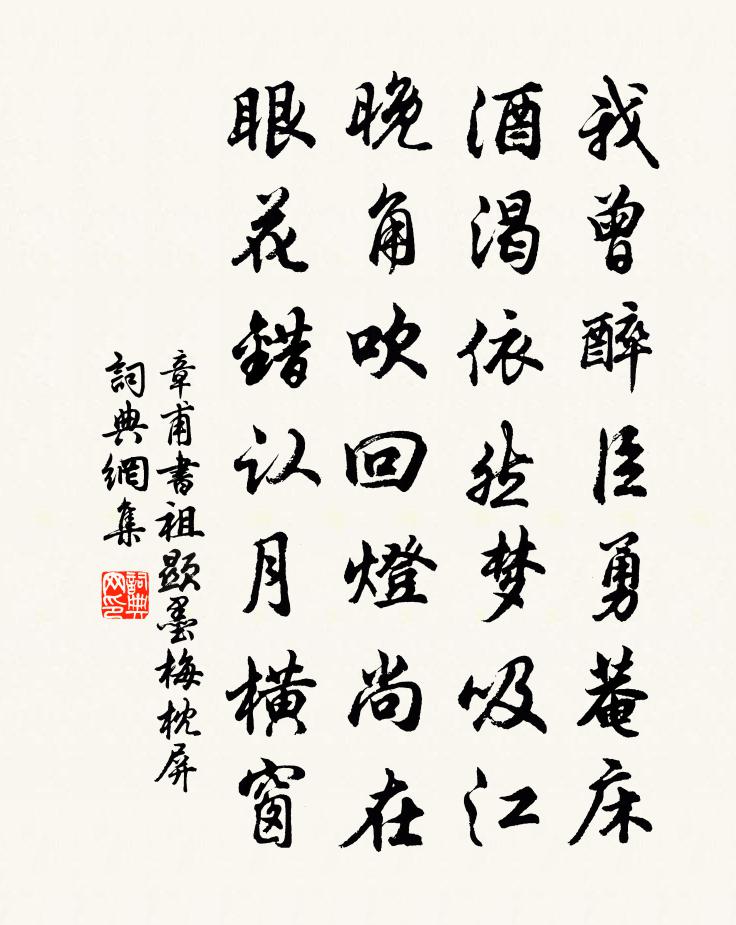 我曾醉臣勇菴床
酒渴依然梦吸江
晚角吹回燈尚在
眼花錯认月橫窗
章甫書祖顯墨梅枕屏
詞典網集
詞典网印